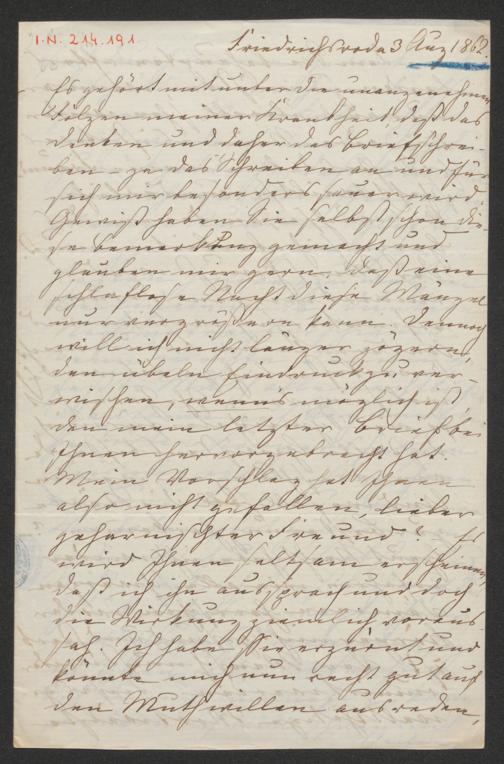 I.N. 214.191
Friedrichsroda 3 Aug 1862
Es gehört mitunter die unangenehmen
Folgen meiner Krankheit, daß das
Denken und daher das Briefschrei-
ben – ja das Schreiben an und für
sich mir besonders sauer wird.
Gewiß haben Sie selbst schon die-
se Bemerkung gemacht und
glauben mir gern, daß eine
schlaflose Nacht diese Mängel
nur vergrößern kann. Dennoch
will ich nicht länger zögern,
den übeln Eindruck zu ver-
wischen, wenns möglich ist,
den mein letzter Brief bei
Ihnen hervorgebracht hat.
Mein Vorschlag hat Ihnen
also nicht gefallen, lieber
geharnischter Freund? Es
wird Ihnen seltsam erscheinen,
daß ich ihn aussprach und doch
die Wirkung ziemlich voraus
sah. Ich habe Sie erzürnt und
könnte mich nun recht gut auf
den Muthwillen ausreden,